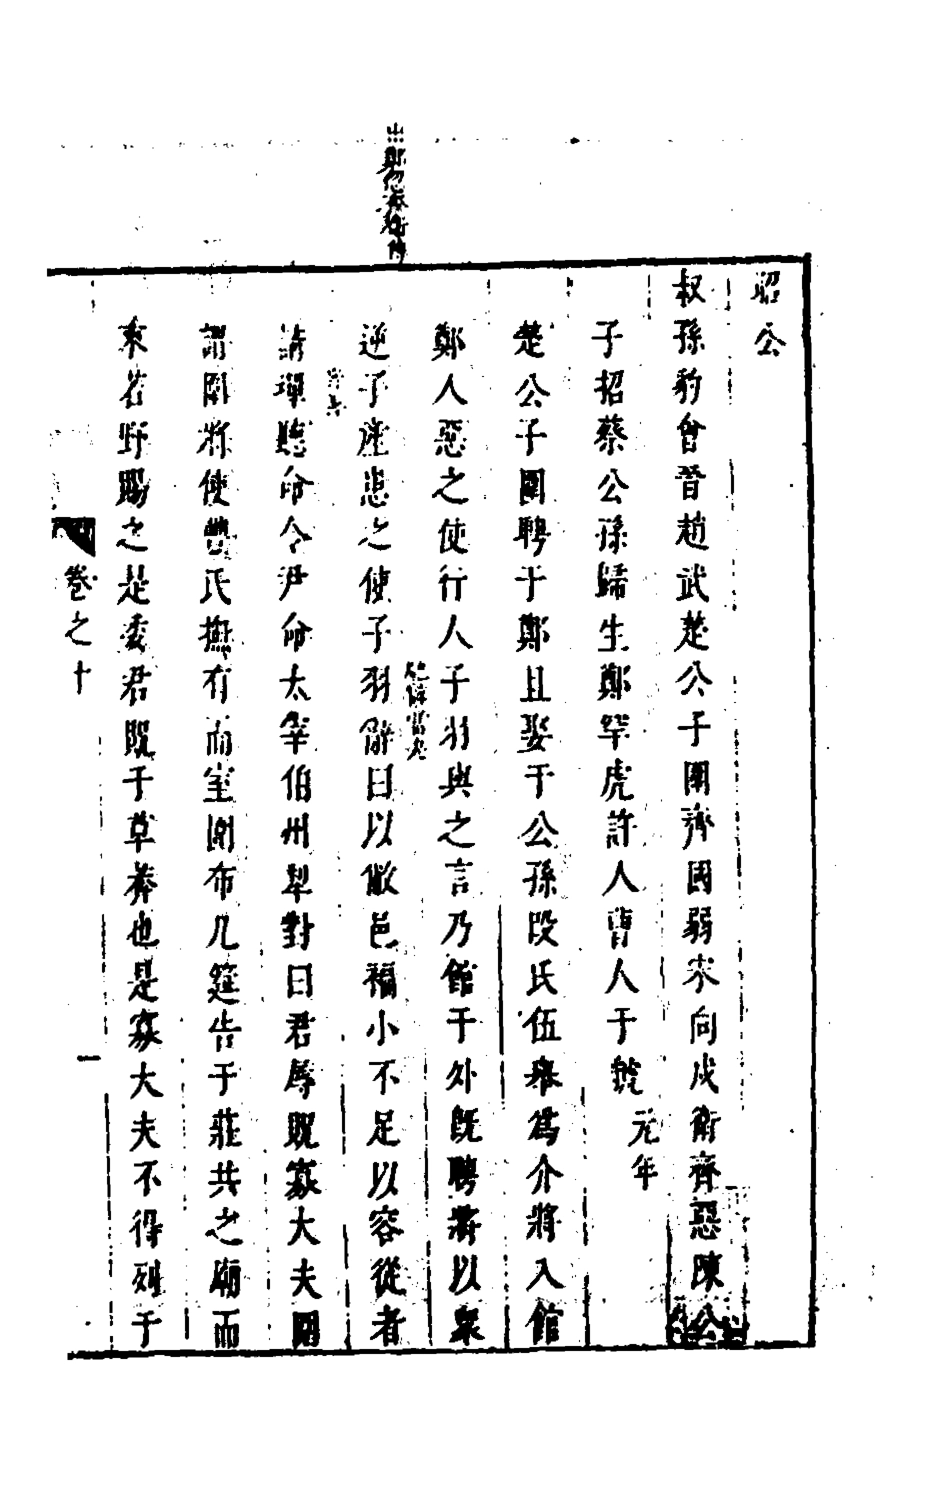 昭公
叔孫豹會晉趙武楚公子圍齊國弱宋向戌衛齊惡陳公
子招蔡公孫歸生鄭罕虎許人曹人于虢元年
楚公子圍聘于鄭且娶于公孫段氏伍舉爲介將入館
鄭人惡之使行人子羽與之言乃館于外旣聘將以衆
逆子產患之使子羽辭曰以敝邑褊小不足以容從者
請墠聽命令尹命太宰伯州犂對曰君辱貺寡大夫圍
謂圍將使豐氏撫有而室圍布几筵告于莊共之廟而
來若野賜之是委君貺于草莽也是寡大夫不得列于
卷之十
一